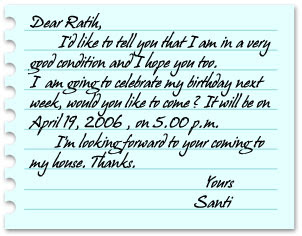 Dear Ratih,
I'd like to tell you that I am in a very
good condition and I hope you too.
I am going to celebrate my birthday next
week, would you like to come? It will be on
April 19, 2006, on 5.00 p.m.
I'm looking forward to your coming to
my house. Thanks.
Yours
Santi